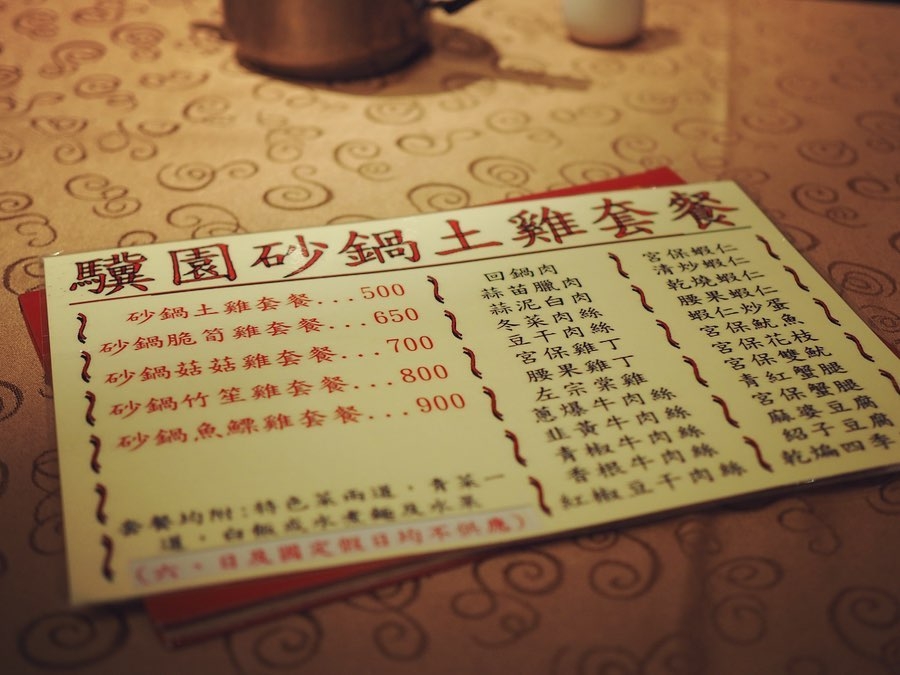 驥園砂鍋土雞套餐
砂鍋土雞套餐...500
砂鍋脆筍雞套餐...650
砂鍋菇菇雞套餐...700
砂鍋竹笙雞套餐...800
砂鍋魚鰾雞套餐...900
套餐均附:特色菜兩道，青菜一
道，白飯或水煮麵及水果
(六、日及國定假日均不供應)
回鍋肉
蒜苗臘肉
蒜泥白肉
冬菜肉絲
豆干肉絲
宮保雞丁
腰果雞丁
左宗棠雞
蔥爆牛肉絲
韮黃牛肉絲
青椒牛肉絲
香根牛肉絲
紅椒豆干肉絲
宮保蝦仁
清炒蝦仁
乾燒蝦仁
腰果蝦仁
蝦仁炒蛋
宮保魷魚
宮保花枝
宮保雙魷
青紅蟹腿
宮保蟹腿
麻婆豆腐
紹子豆腐
乾煸四季